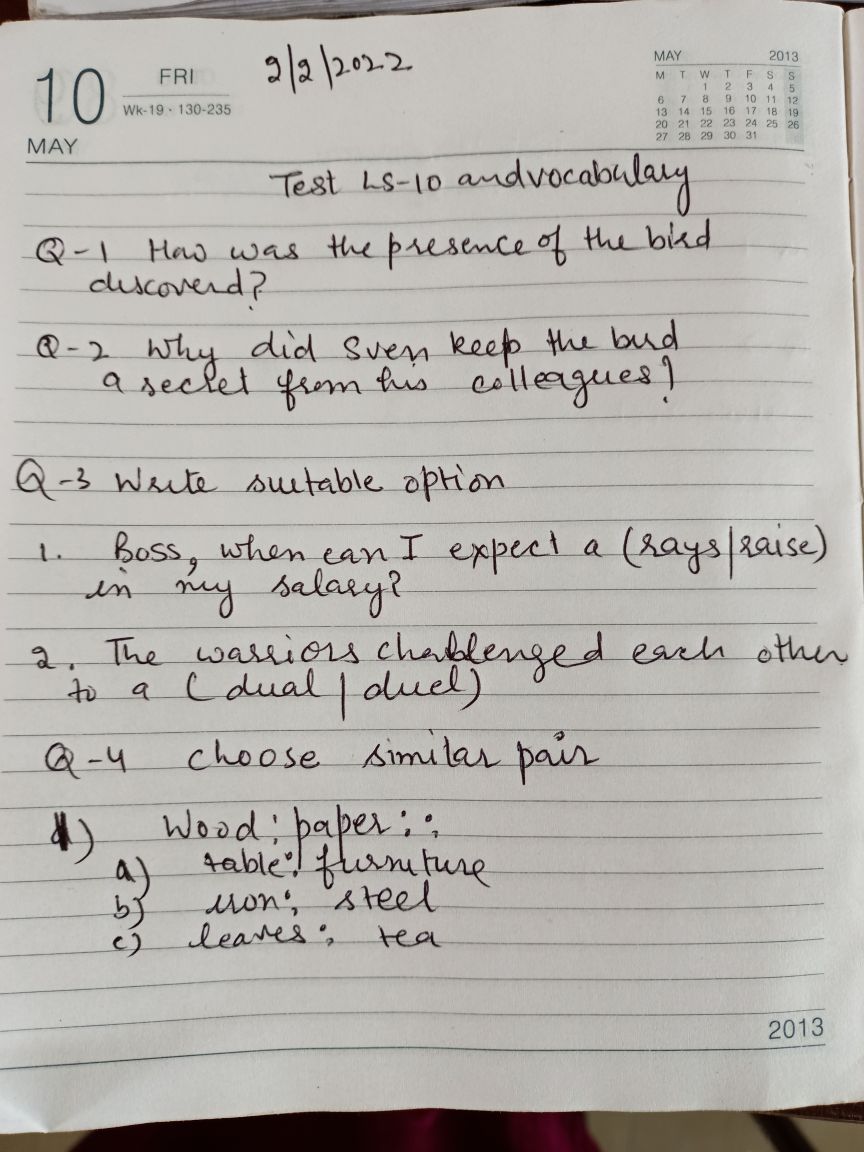 10
FRI
Wk-19 · 130-235
MAY
2/2/2022
MAY 2013
M T W T F S S
1 2 3 4 5
6 7 8 9 10 11 12
13 14 15 16 17 18 19
20 21 22 23 24 25 26
27 28 29 30 31
Test LS-10 and vocabulary
Q-1 How was the presence of the bird
discoverd?
Q-2 Why did Sven keep the bird
a secret from his colleagues?
Q-3 Write suitable option
1. Boss, when can I expect a (rays/raise)
in my salary?
2. The warriors challenged each other
to a (dual / duel)
Q-4 choose similar pair
1) Wood : paper ::
a) table : furniture
b) iron : steel
c) leaves : tea
2013